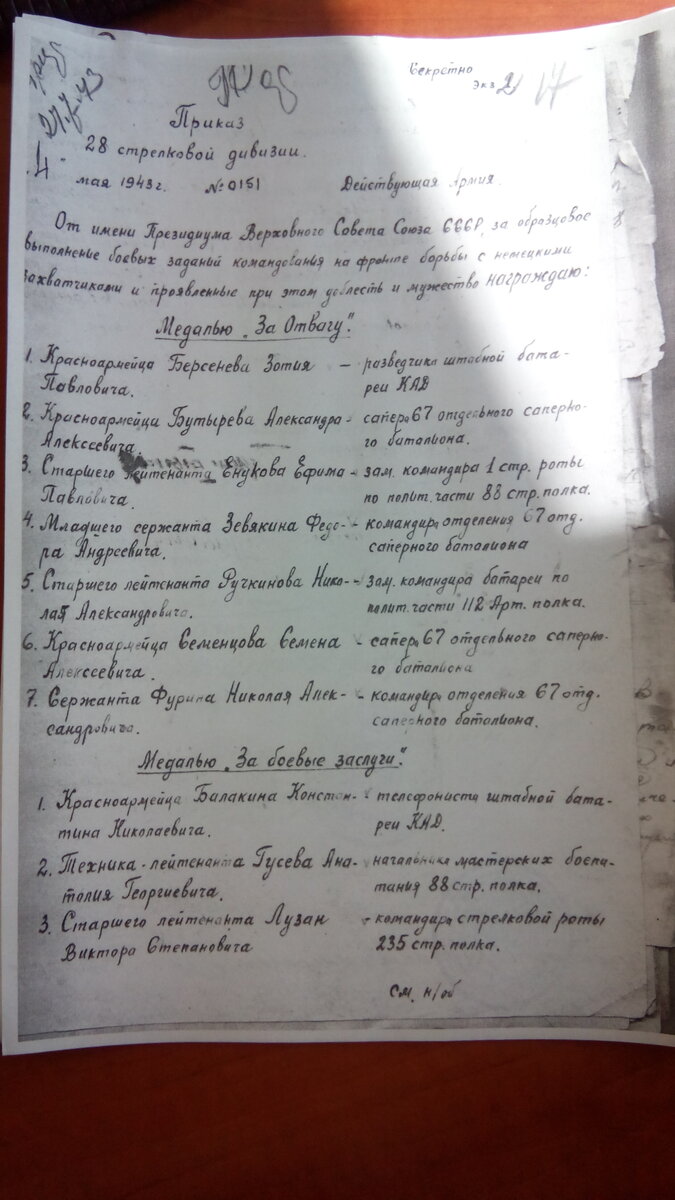 Секретно
Экз 2
17
27.5.43
Приказ
28 стрелковой дивизии.
4.
мая 1943г. №0151 Действующая Армия.
От имени Президиума Верховного Совета Союза ССР, за образцовое
выполнение боевых заданий командования на фронте борьбы с немецкими
захватчиками и проявленные при этом доблесть и мужество награждаю:
Медалью „За Отвагу".
1. Красноармейца Берсенева Зотия — разведчика штабной бата-
Павловича. реи КАД
2. Красноармейца Бутырева Александра - сапера 67 отдельного саперно-
Алексеевича го баталиона.
3. Старшего лейтенанта Енукова Ефима - зам. командира 1 стр. роты
Павловича. по полит. части 88 стр. полка.
4. Младшего сержанта Зевякина Федо- - командира отделения 67 отд.
ра Андреевича. саперного баталиона
5. Старшего лейтенанта Ручкинова Нико- - зам. командира батареи по
лая Александровича. полит. части 112 Арт. полка.
6. Красноармейца Семенцова Семена - сапера 67 отдельного саперно-
Алексеевича. го баталиона
7. Сержанта Фурина Николая Алек- - командира отделения 67 отд.
сандровича. саперного баталиона.
Медалью „За боевые заслуги".
1. Красноармейца Балакина Констан- - телефониста штабной бата-
тина Николаевича. реи КАД.
2. Техника-лейтенанта Гусева Ана- - начальника мастерских боепи-
толия Георгиевича. тания 88 стр. полка.
3. Старшего лейтенанта Лузан - командира стрелковой роты
Виктора Степановича 235 стр. полка.
См. н/об